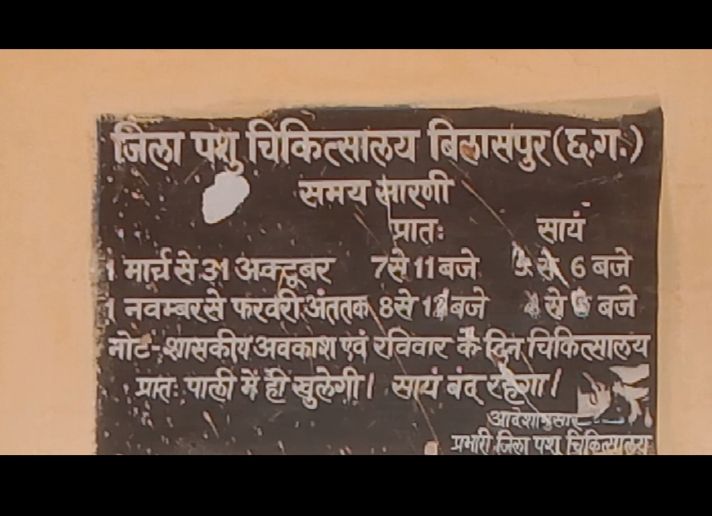 जिला पशु चिकित्सालय बिलासपुर (छ.ग.)
समय सारणी
प्रातः सायं
1 मार्च से 31 अक्टूबर 7 से 11 बजे 5 से 6 बजे
1 नवम्बर से फरवरी अंत तक 8 से 12 बजे से बजे
नोट:- शासकीय अवकाश एवं रविवार के दिन चिकित्सालय
प्रातः पाली में ही खुलेगी। सायं बंद रहेगा।
आदेशानुसार
प्रभारी जिला पशु चिकित्सालय